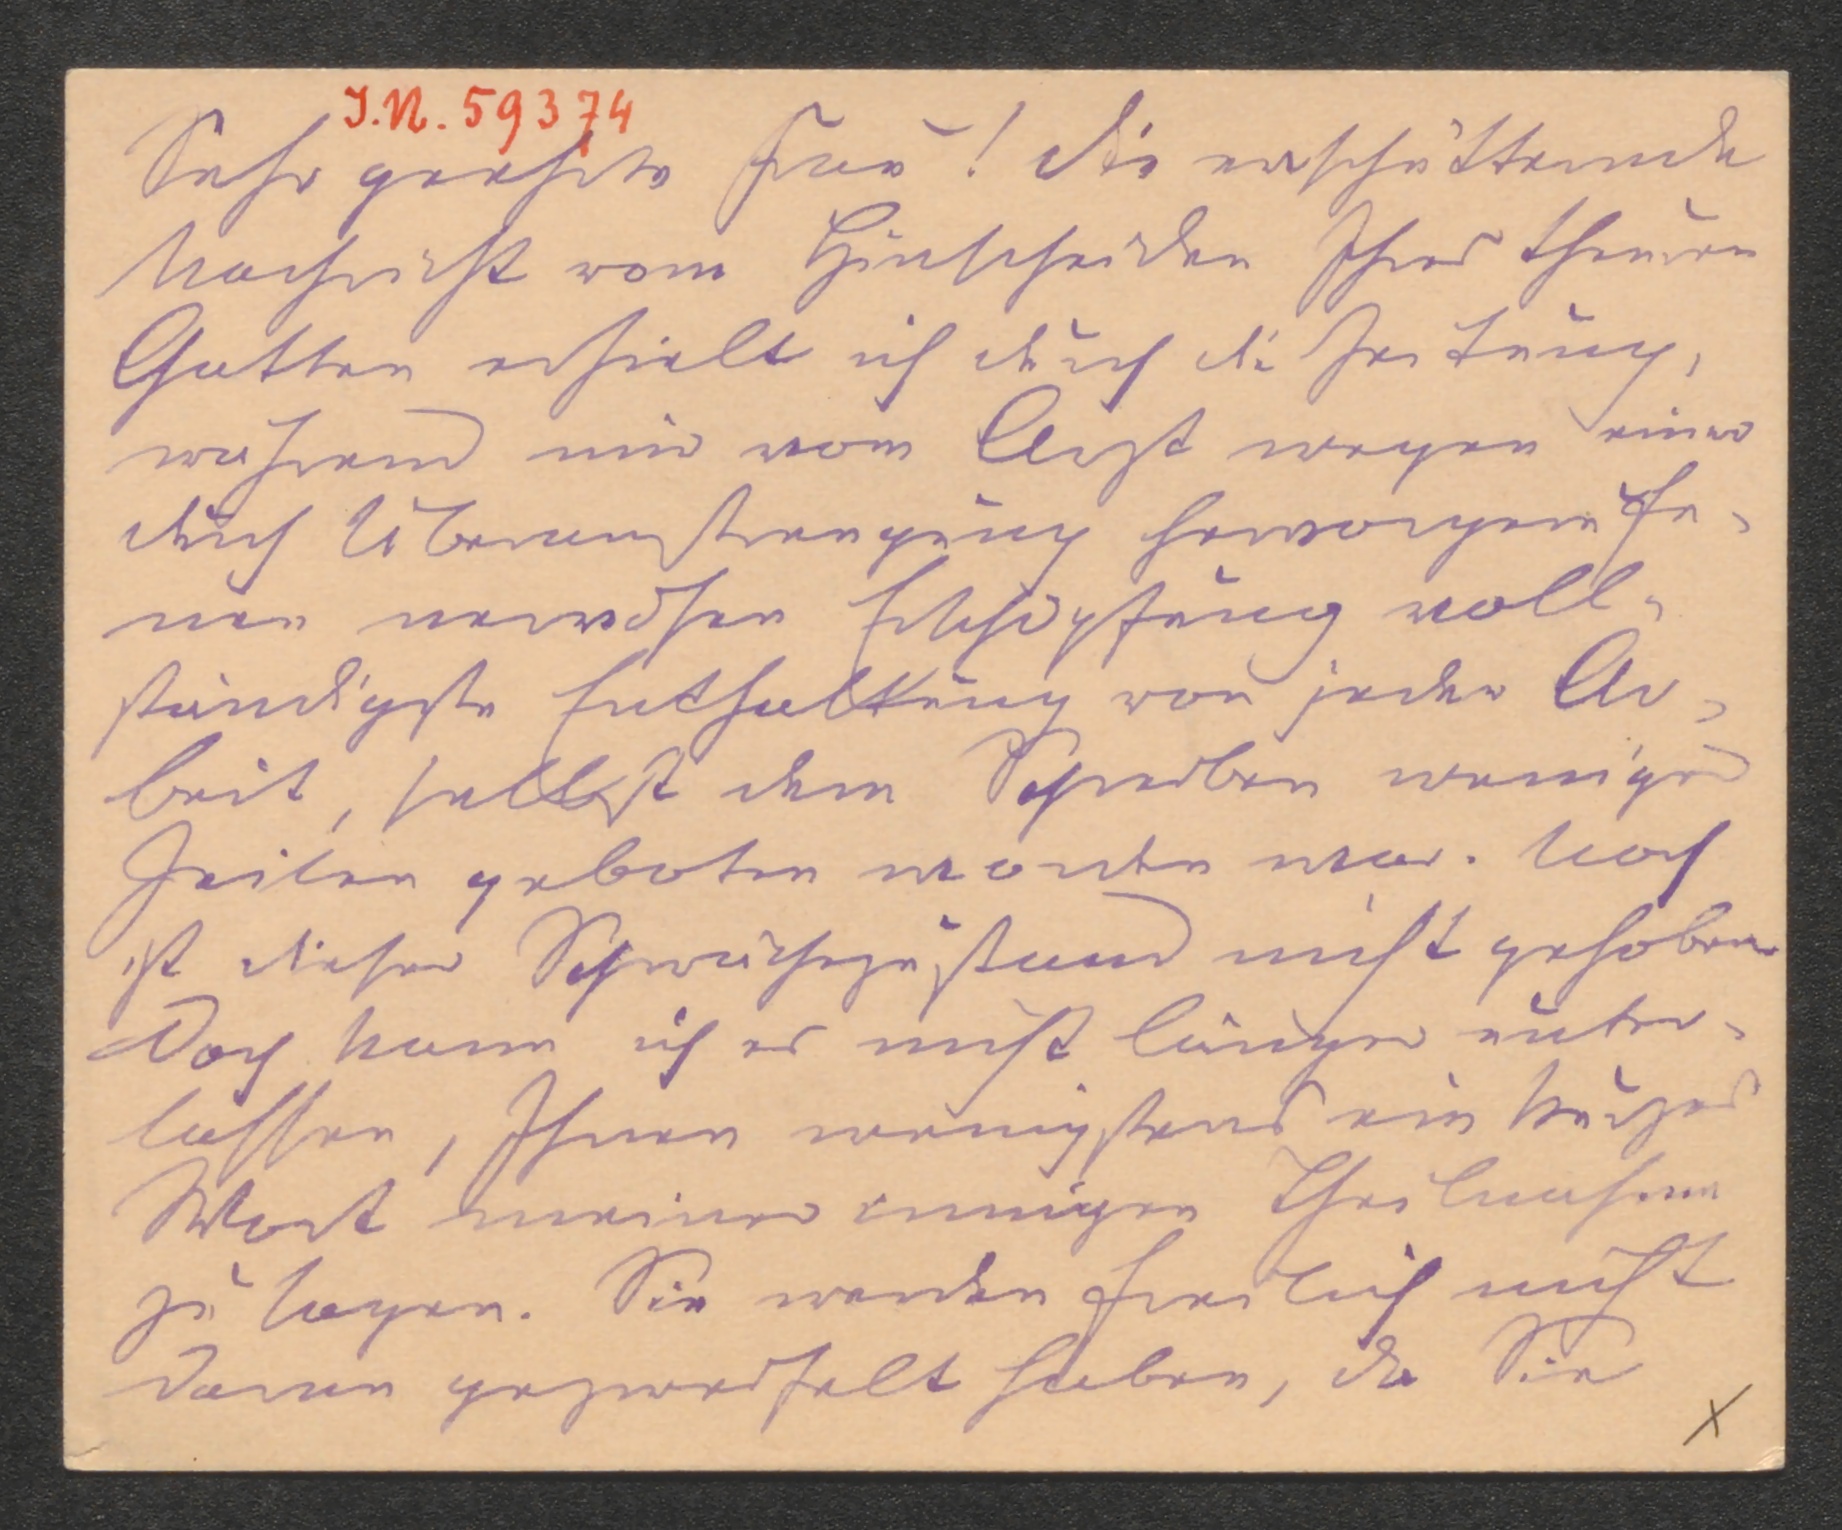 I.N. 59374
Sehr geehrte Frau! Die erschütternde
Nachricht vom Hinscheiden Ihres theuren
Gatten erhielt ich durch die Zeitung,
während mir vom Arzt wegen einer
durch Überanstrengung hervorgerufe-
nen nervösen Erschöpfung voll-
ständigste Enthaltung von jeder Ar-
beit, selbst dem Schreiben weniger
Zeilen geboten worden war. Noch
ist dieser Schwächezustand nicht gehoben.
Doch kann ich es nicht länger unter-
lassen, Ihnen wenigstens ein kurzes
Wort meiner innigen Theilnahme
zu sagen. Sie werden freilich nicht
daran gezweifelt haben, da Sie
x